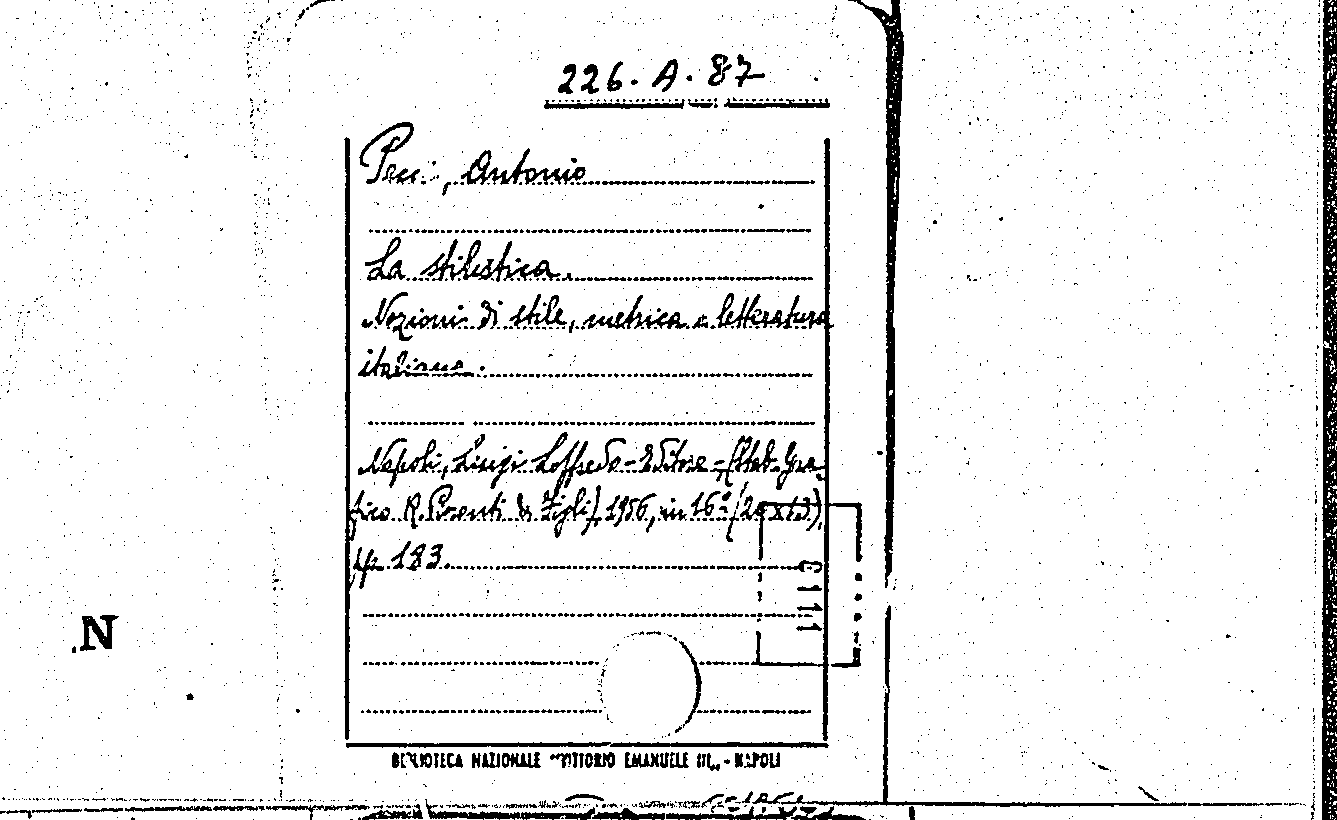 226. A. 87
Antonio
La stilistica.
Nozioni di stile, metrica e letteratura
italiana.
Napoli, Luigi Loffredo - Editore - (Stab. Gra-
fico R. Pironti & Figli), 1956, in 16° (20 x 13),
pp. 183.
N
BIBLIOTECA NAZIONALE "VITTORIO EMANUELE III" - NAPOLI